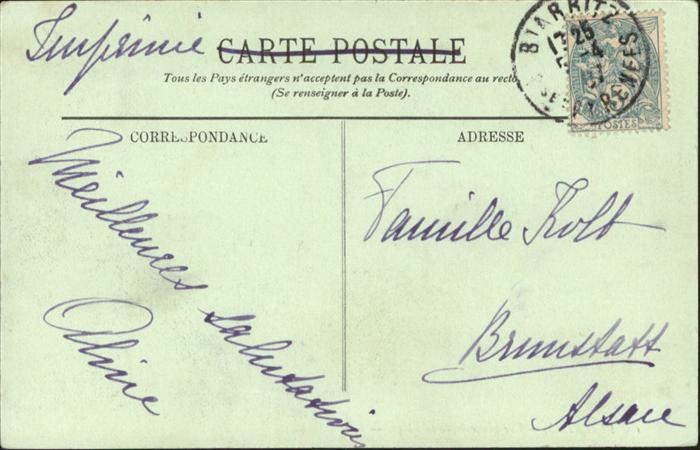 Imprimé
CARTE POSTALE
Tous les Pays étrangers n'acceptent pas la Correspondance au recto
(Se renseigner à la Poste).
CORRESPONDANCE
ADRESSE
Meilleures salutations
Aline
Famille Kolb
Brunstatt
Alsace
BIARRITZ
17 25
POSTES